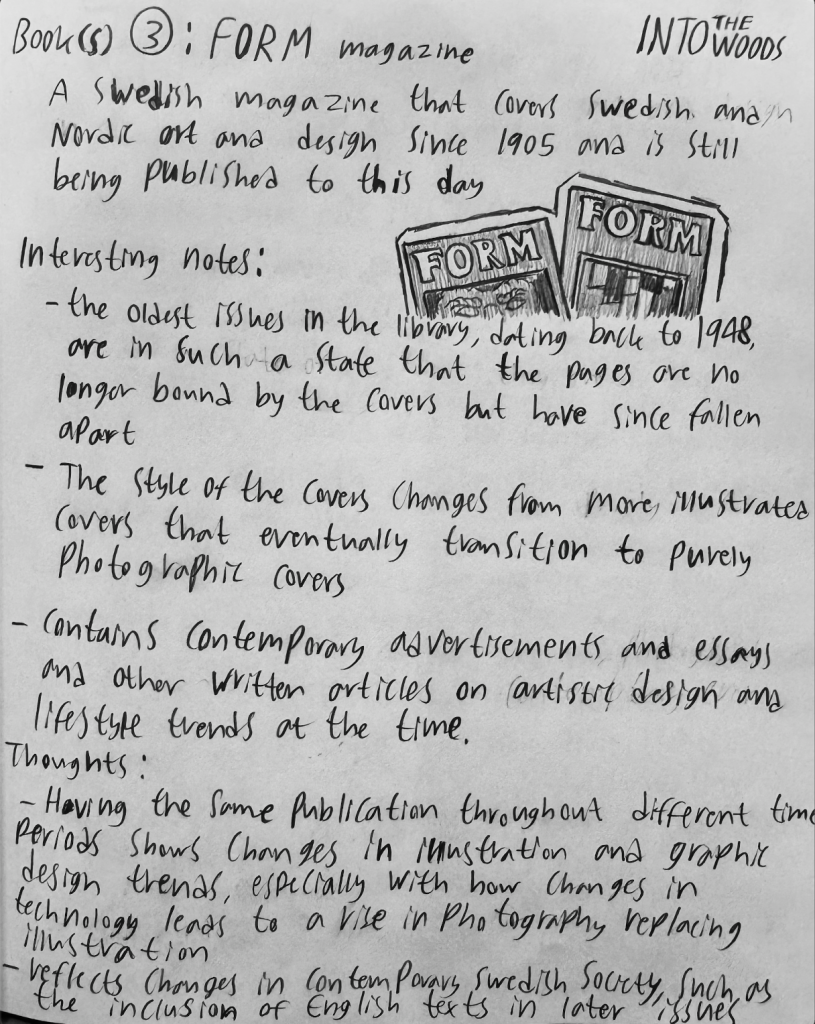 Book(s) ③: FORM magazine
INTO THE WOODS
A Swedish magazine that covers Swedish and
Nordic art and design since 1905 and is still
being published to this day
FORM
FORM
Interesting notes:
- the oldest issues in the library, dating back to 1948,
are in such a state that the pages are no
longer bound by the covers but have since fallen
apart
- The style of the covers changes from more illustrated
covers that eventually transition to purely
photographic covers
- Contains contemporary advertisements and essays
and other written articles on artistic design and
lifestyle trends at the time.
Thoughts:
- Having the same publication throughout different time
periods shows changes in illustration and graphic
design trends, especially with how changes in
technology leads to a rise in photography replacing
illustration
- reflects changes in contemporary Swedish society, such as
the inclusion of English texts in later issues